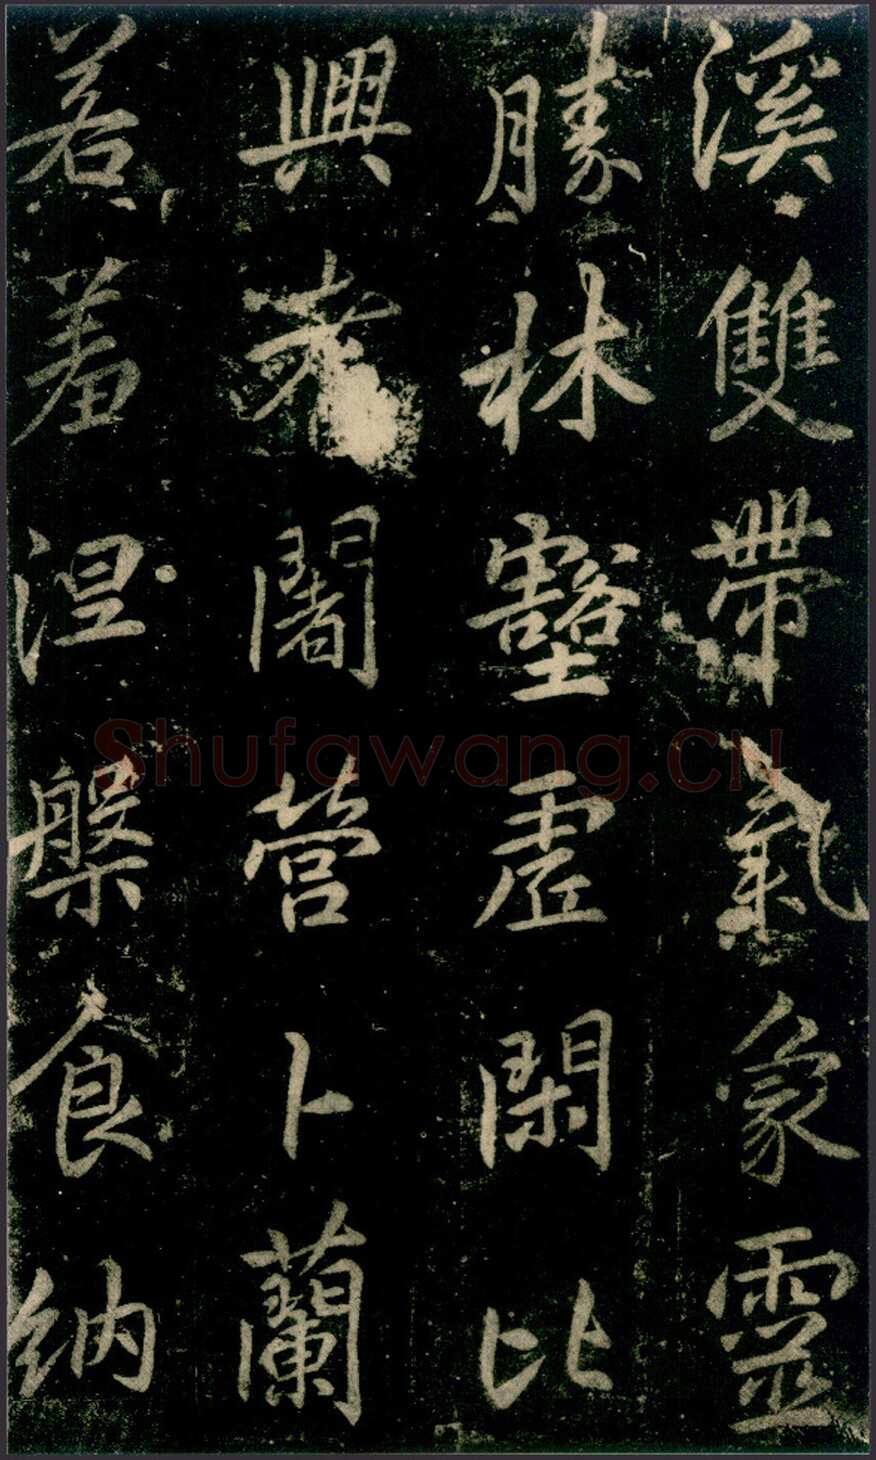 溪雙帶氣象靈
勝林壑虛閑比
興耆闍營卜蘭
若羞涅槃食納
Shufawang.cn